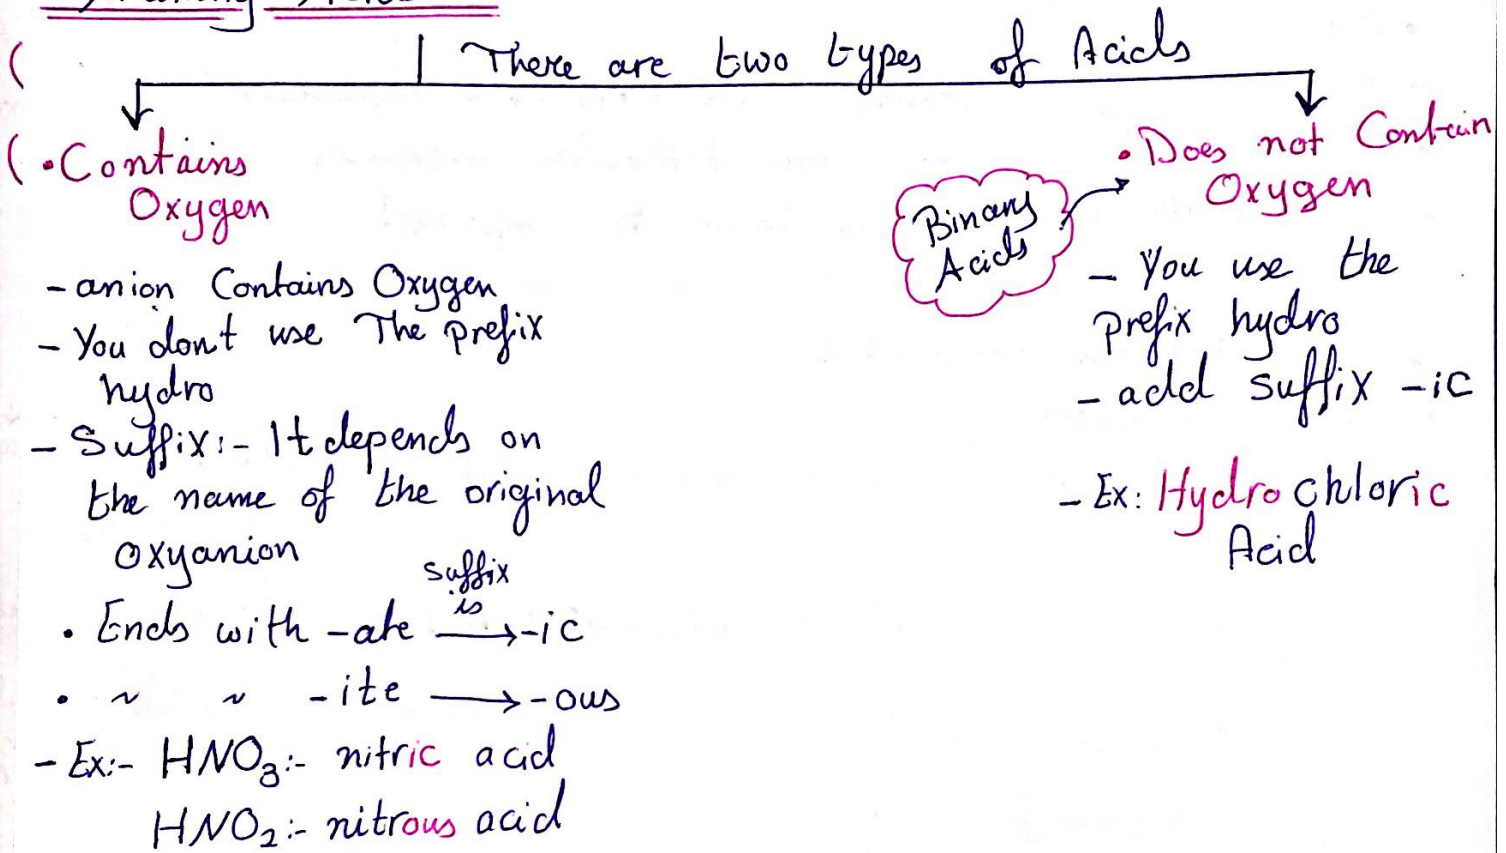 There are two types of Acids
• Contains
Oxygen
- anion Contains Oxygen
- You don't use The prefix
hydro
- Suffix:- It depends on
the name of the original
oxyanion
suffix
is
• Ends with -ate → -ic
• ~ ~ -ite → -ous
- Ex:- HNO₃:- nitric acid
HNO₂:- nitrous acid
Binary
Acids
• Does not Contain
Oxygen
- You use the
prefix hydro
- add suffix -ic
- Ex: Hydrochloric
Acid